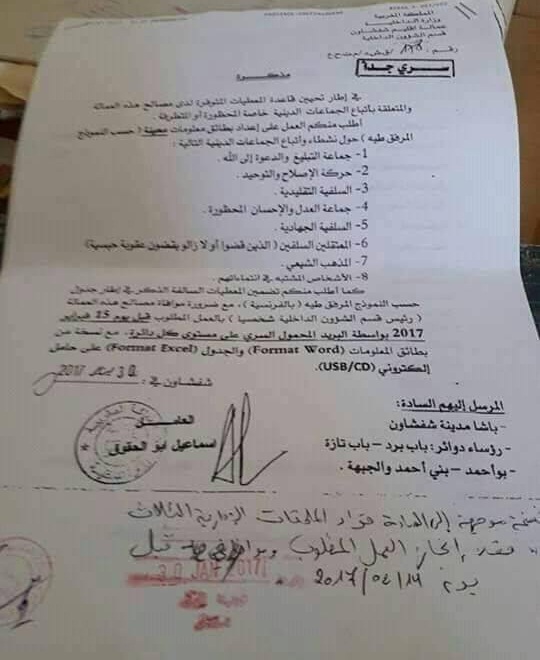 المملكة المغربية
وزارة الداخلية
عمالة إقليم شفشاون
قسم الشؤون الداخلية
رقم:
سري جدا
مذكرة
في إطار تحيين قاعدة المعطيات المتوفرة لدى مصالح هذه العمالة
والمتعلقة بأتباع الجماعات الدينية خاصة المحظورة أو المتطرفة.
أطلب منكم العمل على إعداد بطائق معلومات محينة ( حسب النموذج
المرفق طيه ) حول نشطاء وأتباع الجماعات الدينية التالية :
1- جماعة التبليغ والدعوة إلى الله .
2- حركة الإصلاح والتوحيد .
3- السلفية التقليدية .
4- جماعة العدل والإحسان المحظورة .
5- السلفية الجهادية .
6- المعتقلين السلفين ( الذين قضوا أو لا زالو يقضون عقوبة حبسية)
7- المذهب الشيعي .
8- الأشخاص المشتبه في انتماءاتهم .
كما أطلب منكم تضمين المعطيات السالفة الذكر في إطار جدول
حسب النموذج المرفق طيه ( بالفرنسية ) ، مع ضرورة موافاة مصالح هذه العمالة
( رئيس قسم الشؤون الداخلية شخصيا ) بالعمل المطلوب قبل يوم 15 فبراير
2017 بواسطة البريد المحمول السري على مستوى كل دائرة. مع نسخة من
بطائق المعلومات (Format Word) والجدول (Format Excel) على حامل
إلكتروني (USB/CD).
شفشاون في : 30 2017
العامل
اسماعيل ابو الحقوق
المرسل إليهم السادة:
- باشا مدينة شفشاون
- رؤساء دوائر: باب برد – باب تازة
- بواحمد – بني أحمد والجبهة .
نسخة موجهة إلى السادة قواد الملحقات الإدارية الثلاث
قصد إنجاز العمل المطلوب قبل
يوم 2017/02/14
30 JAN 2017